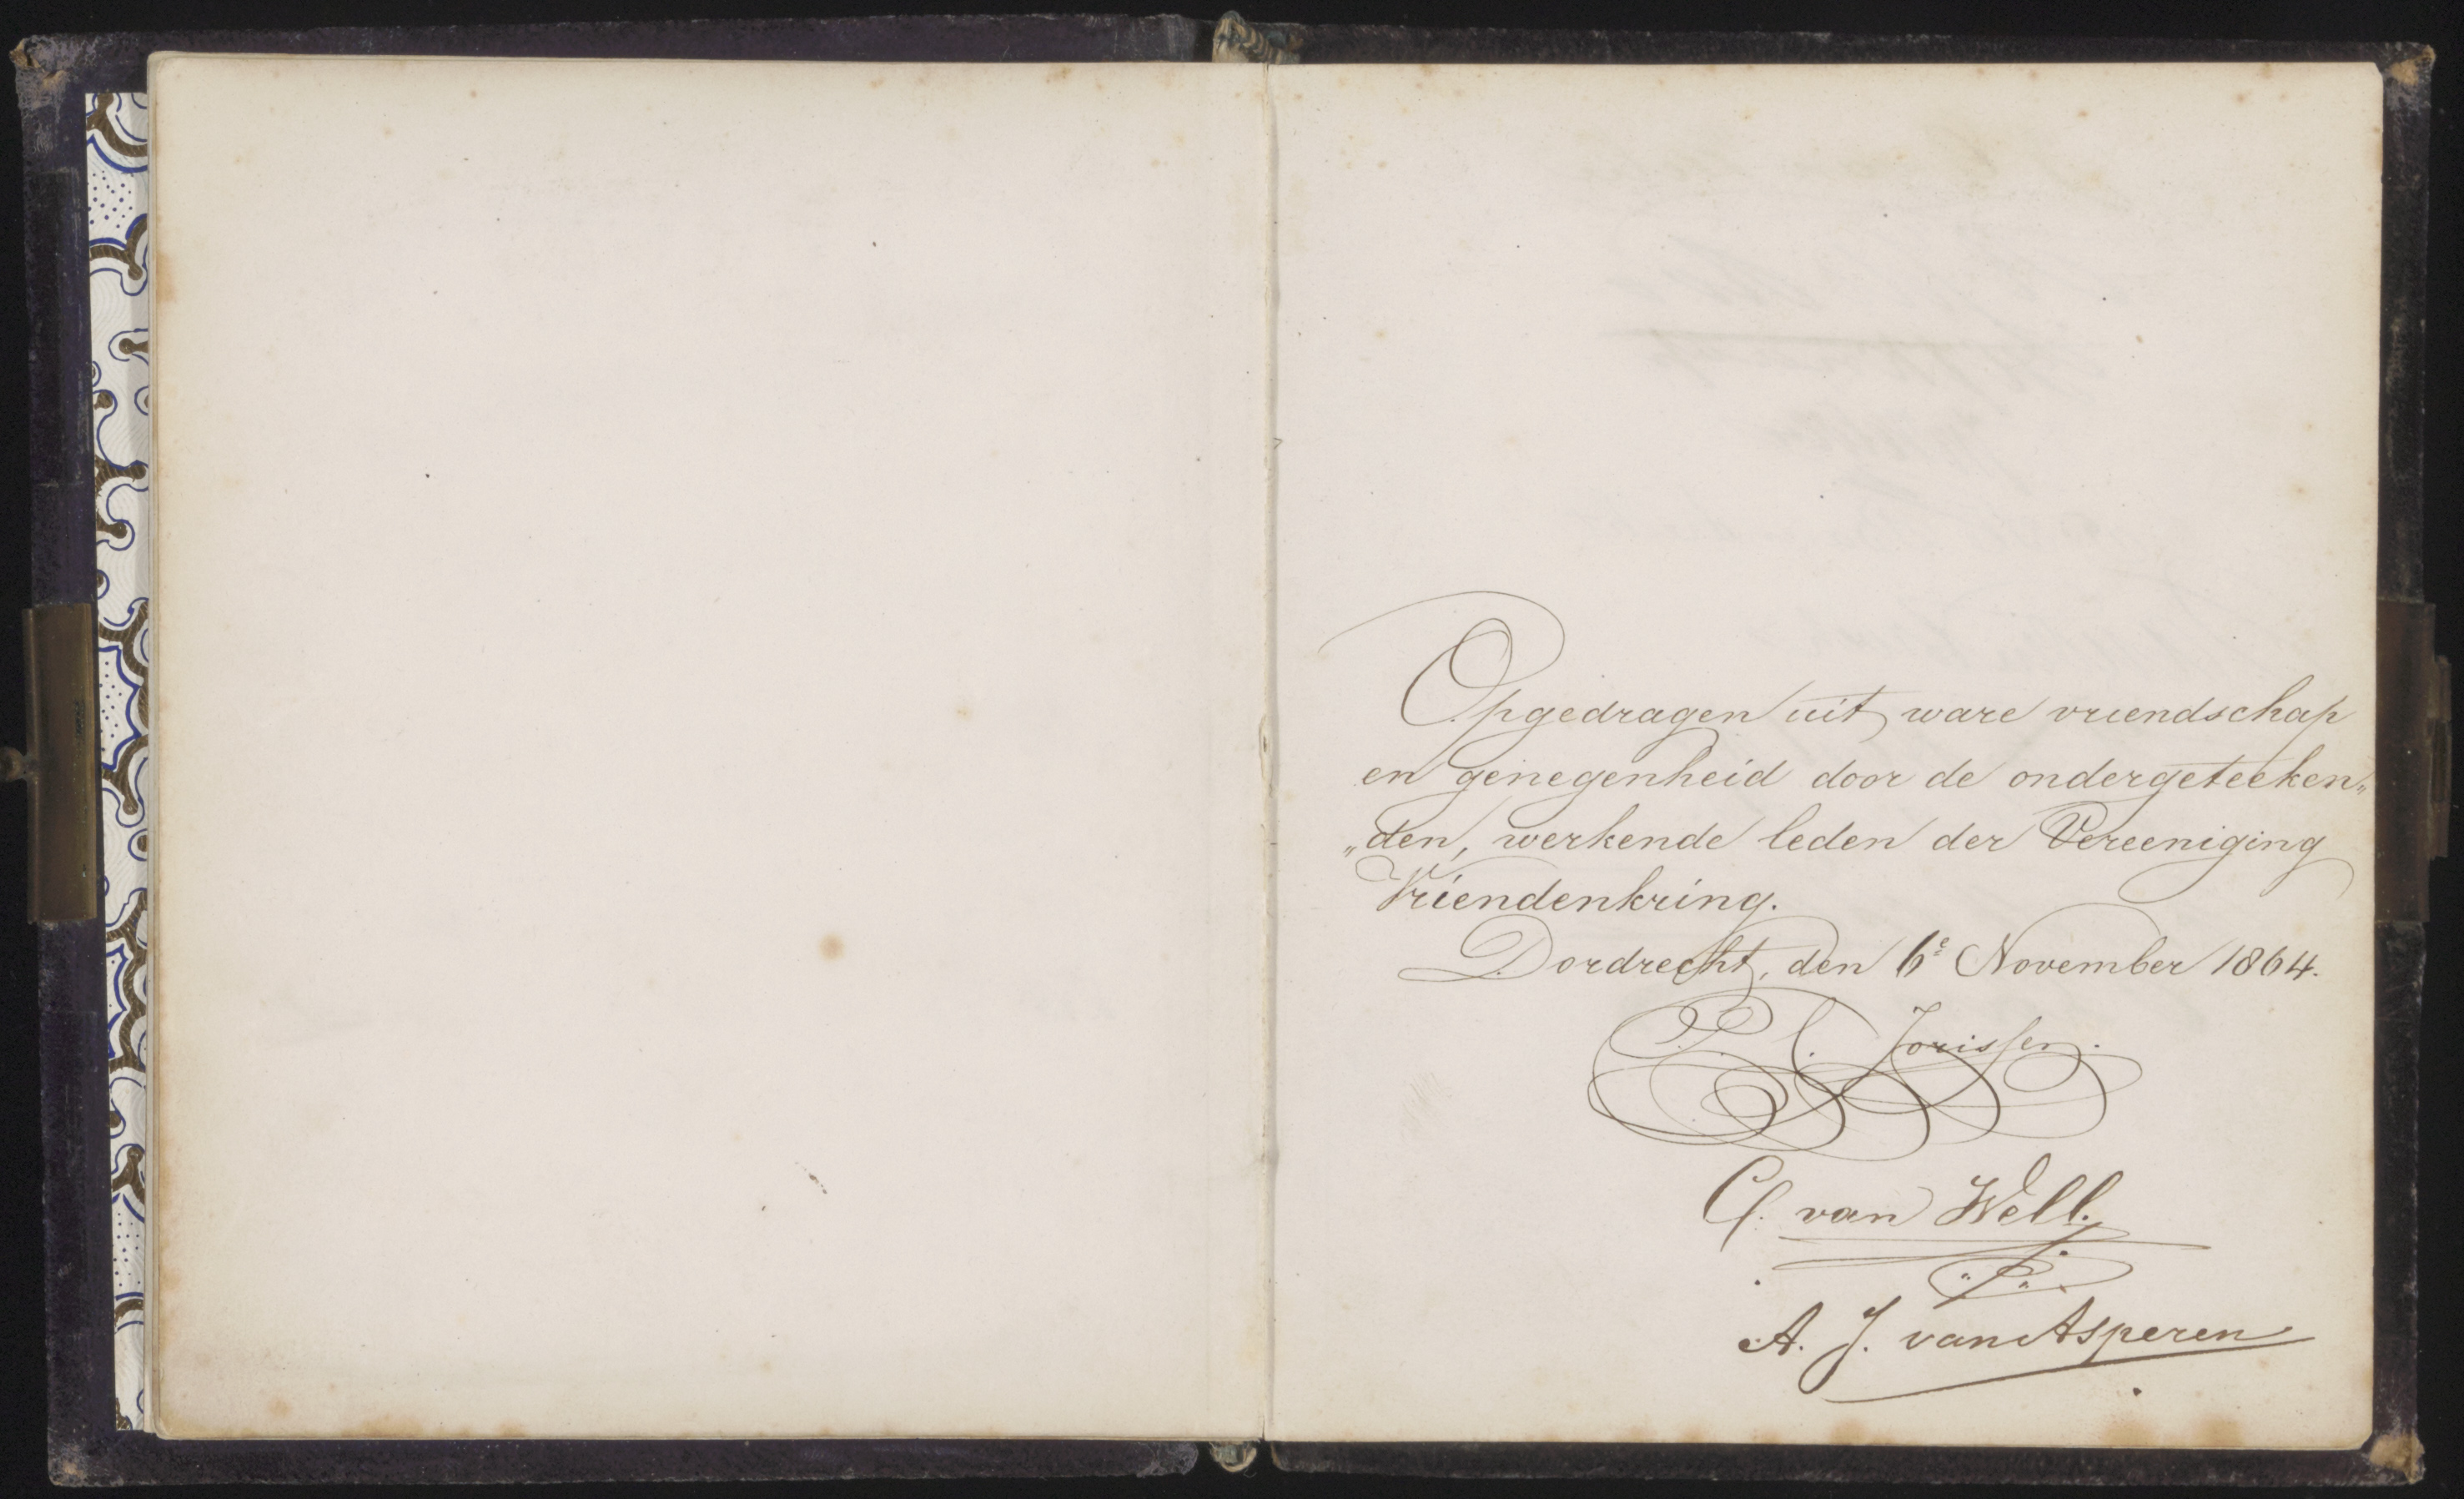 Opgedragen uit ware vriendschap
en genegenheid door de ondergeteeken„
„den, werkende leden der Vereeniging
Vriendenkring.
Dordrecht, den 6e November 1864.
Jorissen.
C. van Well.
A. J. van Asperen